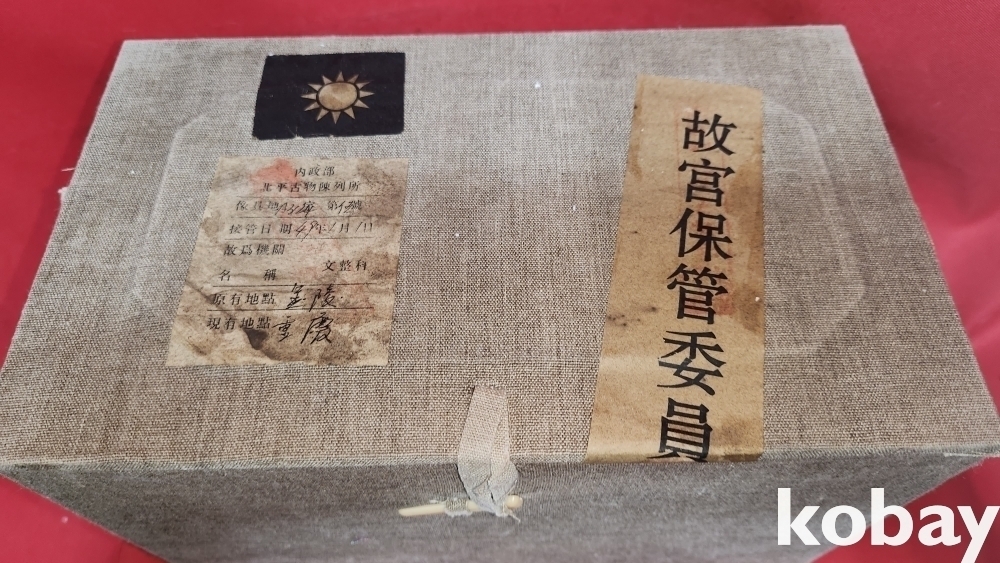 內政部
北平古物陳列所
接管日期
故爲機關
文整科
名稱
原有地點 金陵
現有地點 重慶
故宮保管委員
kobay